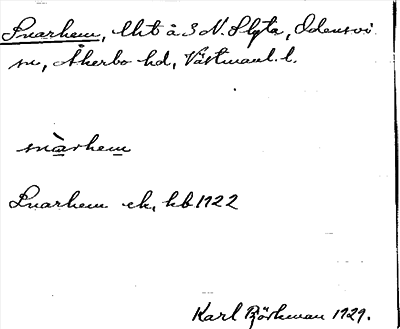 Snarhem, lht å 3 N. Slyta, Odensvi
sn, Åkerbo hd, Västmanl. l.
snàrhem
Snarhem ek, hb 1722
Karl Björkman 1929.